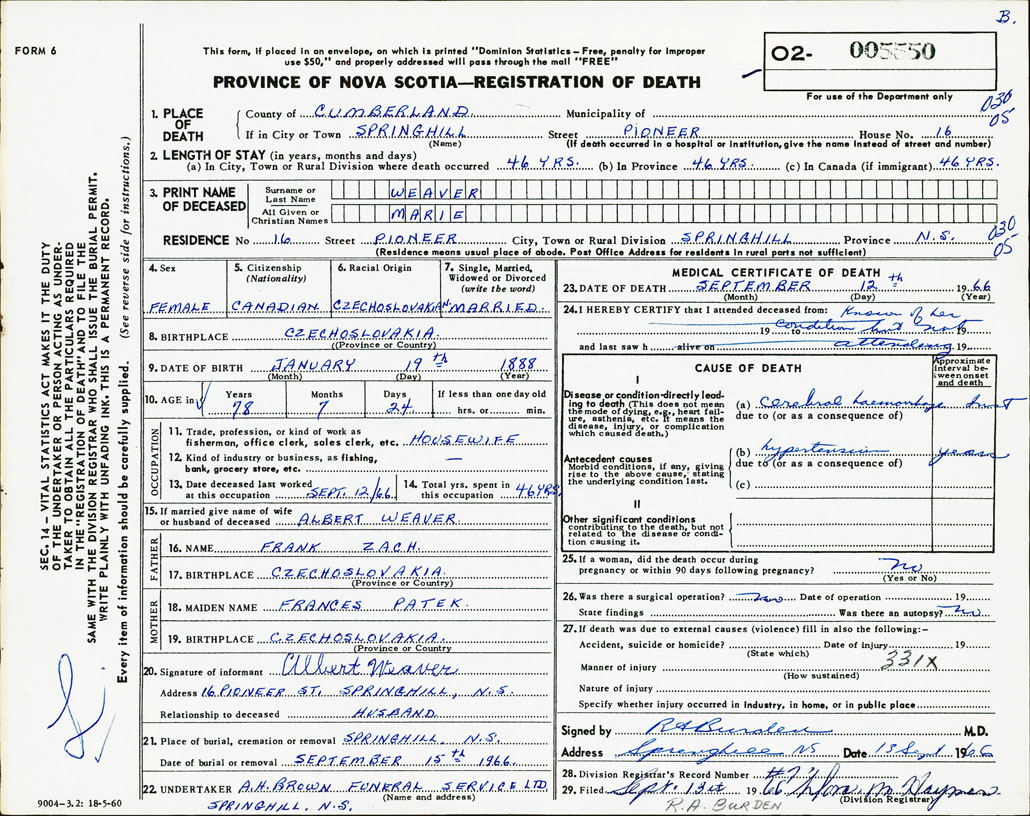 B.
FORM 6
This form, if placed in an envelope, on which is printed "Dominion Statistics – Free, penalty for improper
use $50," and properly addressed will pass through the mail "FREE"
PROVINCE OF NOVA SCOTIA—REGISTRATION OF DEATH
O2- 005550
For use of the Department only
030
05
1. PLACE OF DEATH
County of CUMBERLAND Municipality of
If in City or Town SPRINGHILL Street PIONEER House No. 16
(Name) (If death occurred in a hospital or institution, give the name instead of street and number)
2. LENGTH OF STAY (in years, months and days)
(a) In City, Town or Rural Division where death occurred 46 YRS. (b) In Province 46 YRS. (c) In Canada (if immigrant) 46 YRS.
3. PRINT NAME OF DECEASED
Surname or Last Name WEAVER
All Given or Christian Names MARIE
030
05
RESIDENCE No 16 Street PIONEER City, Town or Rural Division SPRINGHILL Province N.S.
(Residence means usual place of abode. Post Office Address for residents in rural parts not sufficient)
4. Sex
FEMALE
5. Citizenship (Nationality)
CANADIAN
6. Racial Origin
CZECHOSLOVAKIAN
7. Single, Married, Widowed or Divorced (write the word)
MARRIED.
8. BIRTHPLACE CZECHOSLOVAKIA.
((Province or Country)
9. DATE OF BIRTH JANUARY 19th 1888
(Month) (Day) (Year)
10. AGE in
Years 78
Months 7
Days 24
If less than one day old
hrs. or min.
OCCUPATION
11. Trade, profession, or kind of work as
fisherman, office clerk, sales clerk, etc. HOUSEWIFE
12. Kind of industry or business, as fishing,
bank, grocery store, etc. —
13. Date deceased last worked
at this occupation SEPT. 12/66
14. Total yrs. spent in
this occupation 46 YRS.
15. If married give name of wife
or husband of deceased ALBERT WEAVER.
FATHER
16. NAME FRANK ZACH.
17. BIRTHPLACE CZECHOSLOVAKIA.
(Province or Country)
MOTHER
18. MAIDEN NAME FRANCES PATEK.
19. BIRTHPLACE CZECHOSLOVAKIA.
(Province or Country
20. Signature of informant Albert Weaver
Address 16 PIONEER ST. SPRINGHILL, N.S.
Relationship to deceased HUSBAND.
21. Place of burial, cremation or removal SPRINGHILL, N.S.
Date of burial or removal SEPTEMBER 15th 1966.
22. UNDERTAKER A.H. BROWN FUNERAL SERVICE LTD
(Name and address)
SPRINGHILL, N.S.
MEDICAL CERTIFICATE OF DEATH
23. DATE OF DEATH SEPTEMBER 12th 1966
(Month) (Day) (Year)
24. I HEREBY CERTIFY that I attended deceased from: Know of her
19 condition but not 19
and last saw h alive on attending 19
CAUSE OF DEATH
Approximate interval between onset and death
I
Disease or condition directly leading to death (This does not mean
the mode of dying, e.g., heart failure, asthenia, etc. It means the
disease, injury, or complication
which caused death.)
(a) Cerebral haemorrhage
due to (or as a consequence of)
Antecedent causes
Morbid conditions, if any, giving
rise to the above cause, stating
the underlying condition last.
(b) hypertension years
due to (or as a consequence of)
(c)
II
Other significant conditions
contributing to the death, but not
related to the disease or condition causing it.
25. If a woman, did the death occur during
pregnancy or within 90 days following pregnancy? no
(Yes or No)
26. Was there a surgical operation? no Date of operation 19
State findings Was there an autopsy? no
27. If death was due to external causes (violence) fill in also the following:–
Accident, suicide or homicide? Date of injury 19
(State which)
331X
Manner of injury
(How sustained)
Nature of injury
Specify whether injury occurred in industry, in home, or in public place
Signed by R A Burden M.D.
Address Springhill NS Date 13 Sept 1966
28. Division Registrar's Record Number #77
29. Filed Sept. 13th 1966
(Division Registrar)
R.A. BURDEN
SEC. 14 – VITAL STATISTICS ACT MAKES IT THE DUTY
OF THE UNDERTAKER OR PERSON ACTING AS UNDERTAKER TO OBTAIN ALL THE PARTICULARS REQUIRED
IN THE "REGISTRATION OF DEATH" AND TO FILE THE
SAME WITH THE DIVISION REGISTRAR WHO SHALL ISSUE THE BURIAL PERMIT.
WRITE PLAINLY WITH UNFADING INK. THIS IS A PERMANENT RECORD.
Every item of information should be carefully supplied. (See reverse side for instructions.)
9004-3.2: 18-5-60